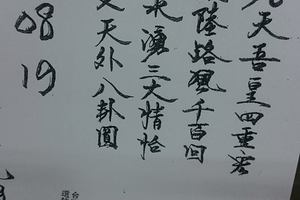 天吾皇四重客
陸路風千百回
來湧三大精恰
天外八卦圓
08
19